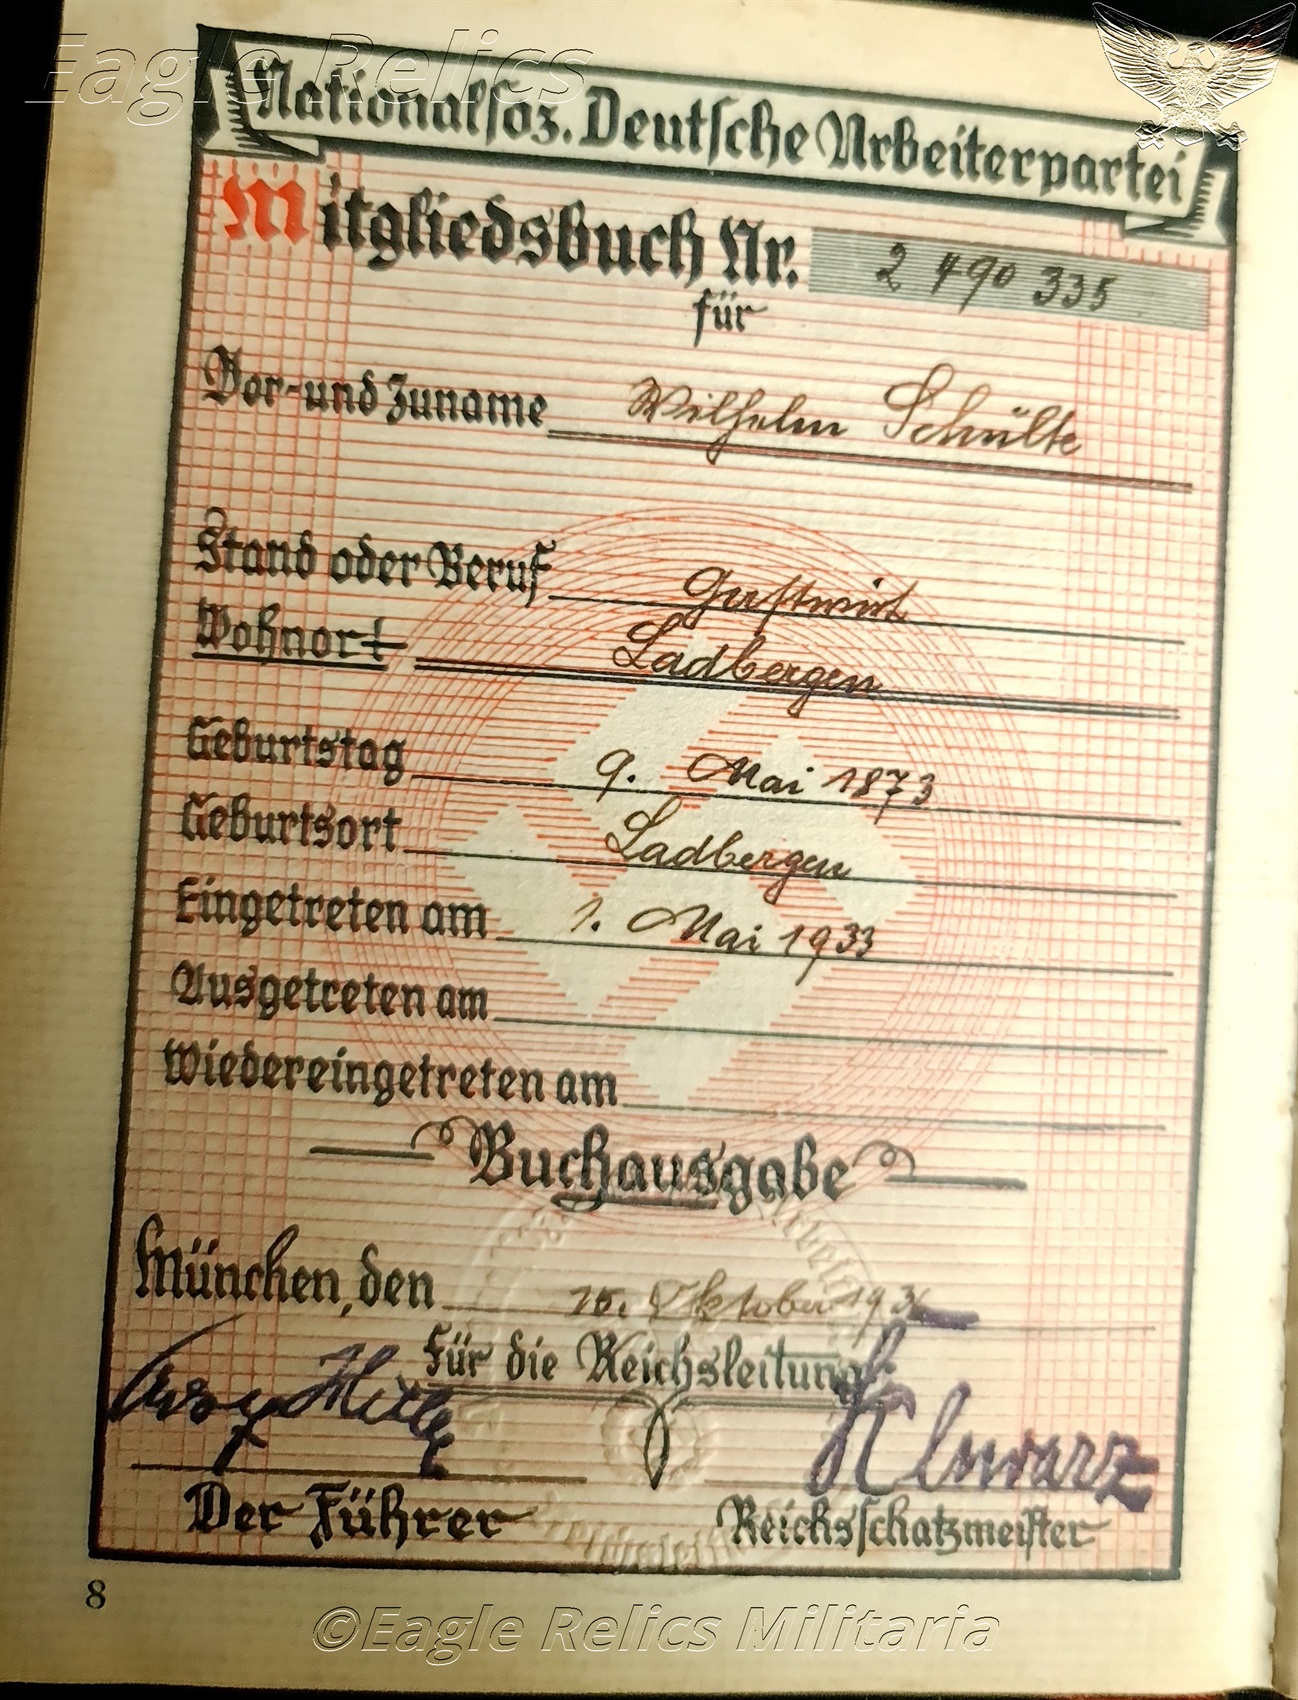 Eagle Relics
Nationalsoz. Deutsche Arbeiterpartei
Mitgliedsbuch Nr. 2 490 335
für
Vor- und Zuname Wilhelm Schülte
Stand oder Beruf Gastwirt
Wohnort Ladbergen
Geburtstag 9. Mai 1873
Geburtsort Ladbergen
Eingetreten am 1. Mai 1933
Ausgetreten am
Wiedereingetreten am
Buchausgabe
München, den Oktober 193
Für die Reichsleitung:
Adolf Hitler Schwarz
Der Führer Reichsschatzmeister
8
©Eagle Relics Militaria